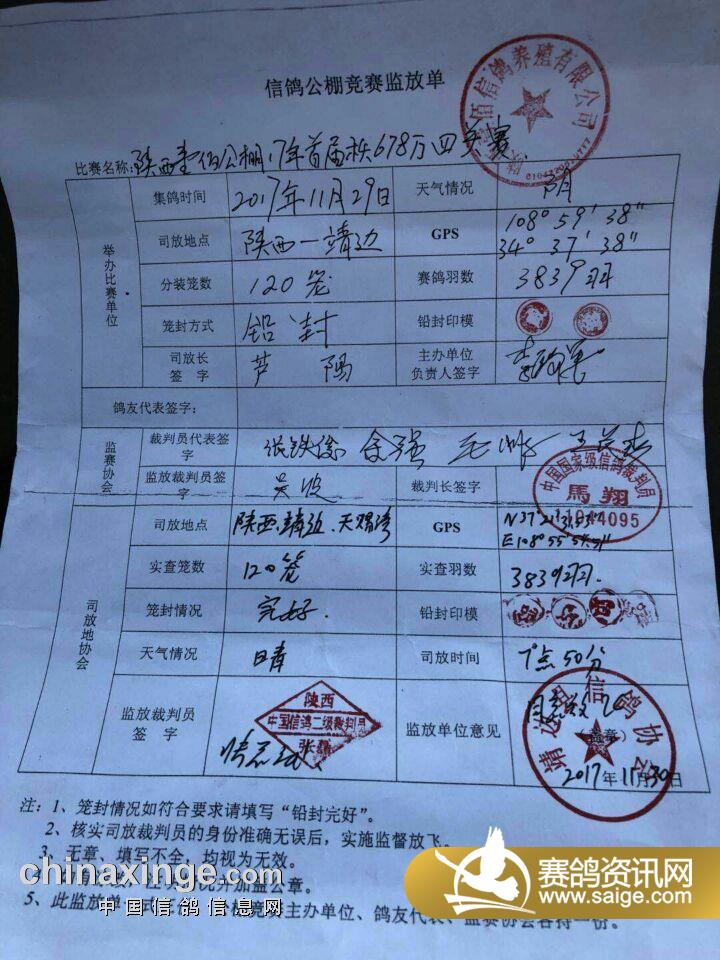 信鸽公棚竞赛监放单
佰信鸽养殖有限公司
比赛名称:陕西壹佰公棚17年首届秩678万四关赛
举办比赛单位
集鸽时间 2017年11月29日 天气情况 阴
司放地点 陕西—靖边 GPS 108° 59' 38" 34° 37' 38"
分装笼数 120笼 赛鸽羽数 3839羽
笼封方式 铅封 铅封印模
司放长签字 芦陽 主办单位负责人签字
鸽友代表签字:
监赛协会
裁判员代表签字 张铁俊 余强
监放裁判员签字 吴波 裁判长签字
中国国家级信鸽裁判员
馬翔
司放地协会
司放地点 陕西.靖边.天赐湾 GPS
实查笼数 120笼 实查羽数 3839羽.
笼封情况 完好. 铅封印模
天气情况 晴 司放时间 7点50分
监放裁判员签字 监放单位意见
陕西
中国信鸽二级裁判员
靖边 信鸽协会
(盖章)
2017年11月30日
注:1、笼封情况如符合要求请填写“铅封完好”。
2、核实司放裁判员的身份准确无误后,实施监督放飞。
3、无章、填写不全,均视为无效。
并加盖公章。
5、此监放单一式三份,公棚竞赛主办单位、鸽友代表、监赛协会各持一份。
chinaxinge.com
中国信鸽信息网
赛鸽资讯网
www.saige.com